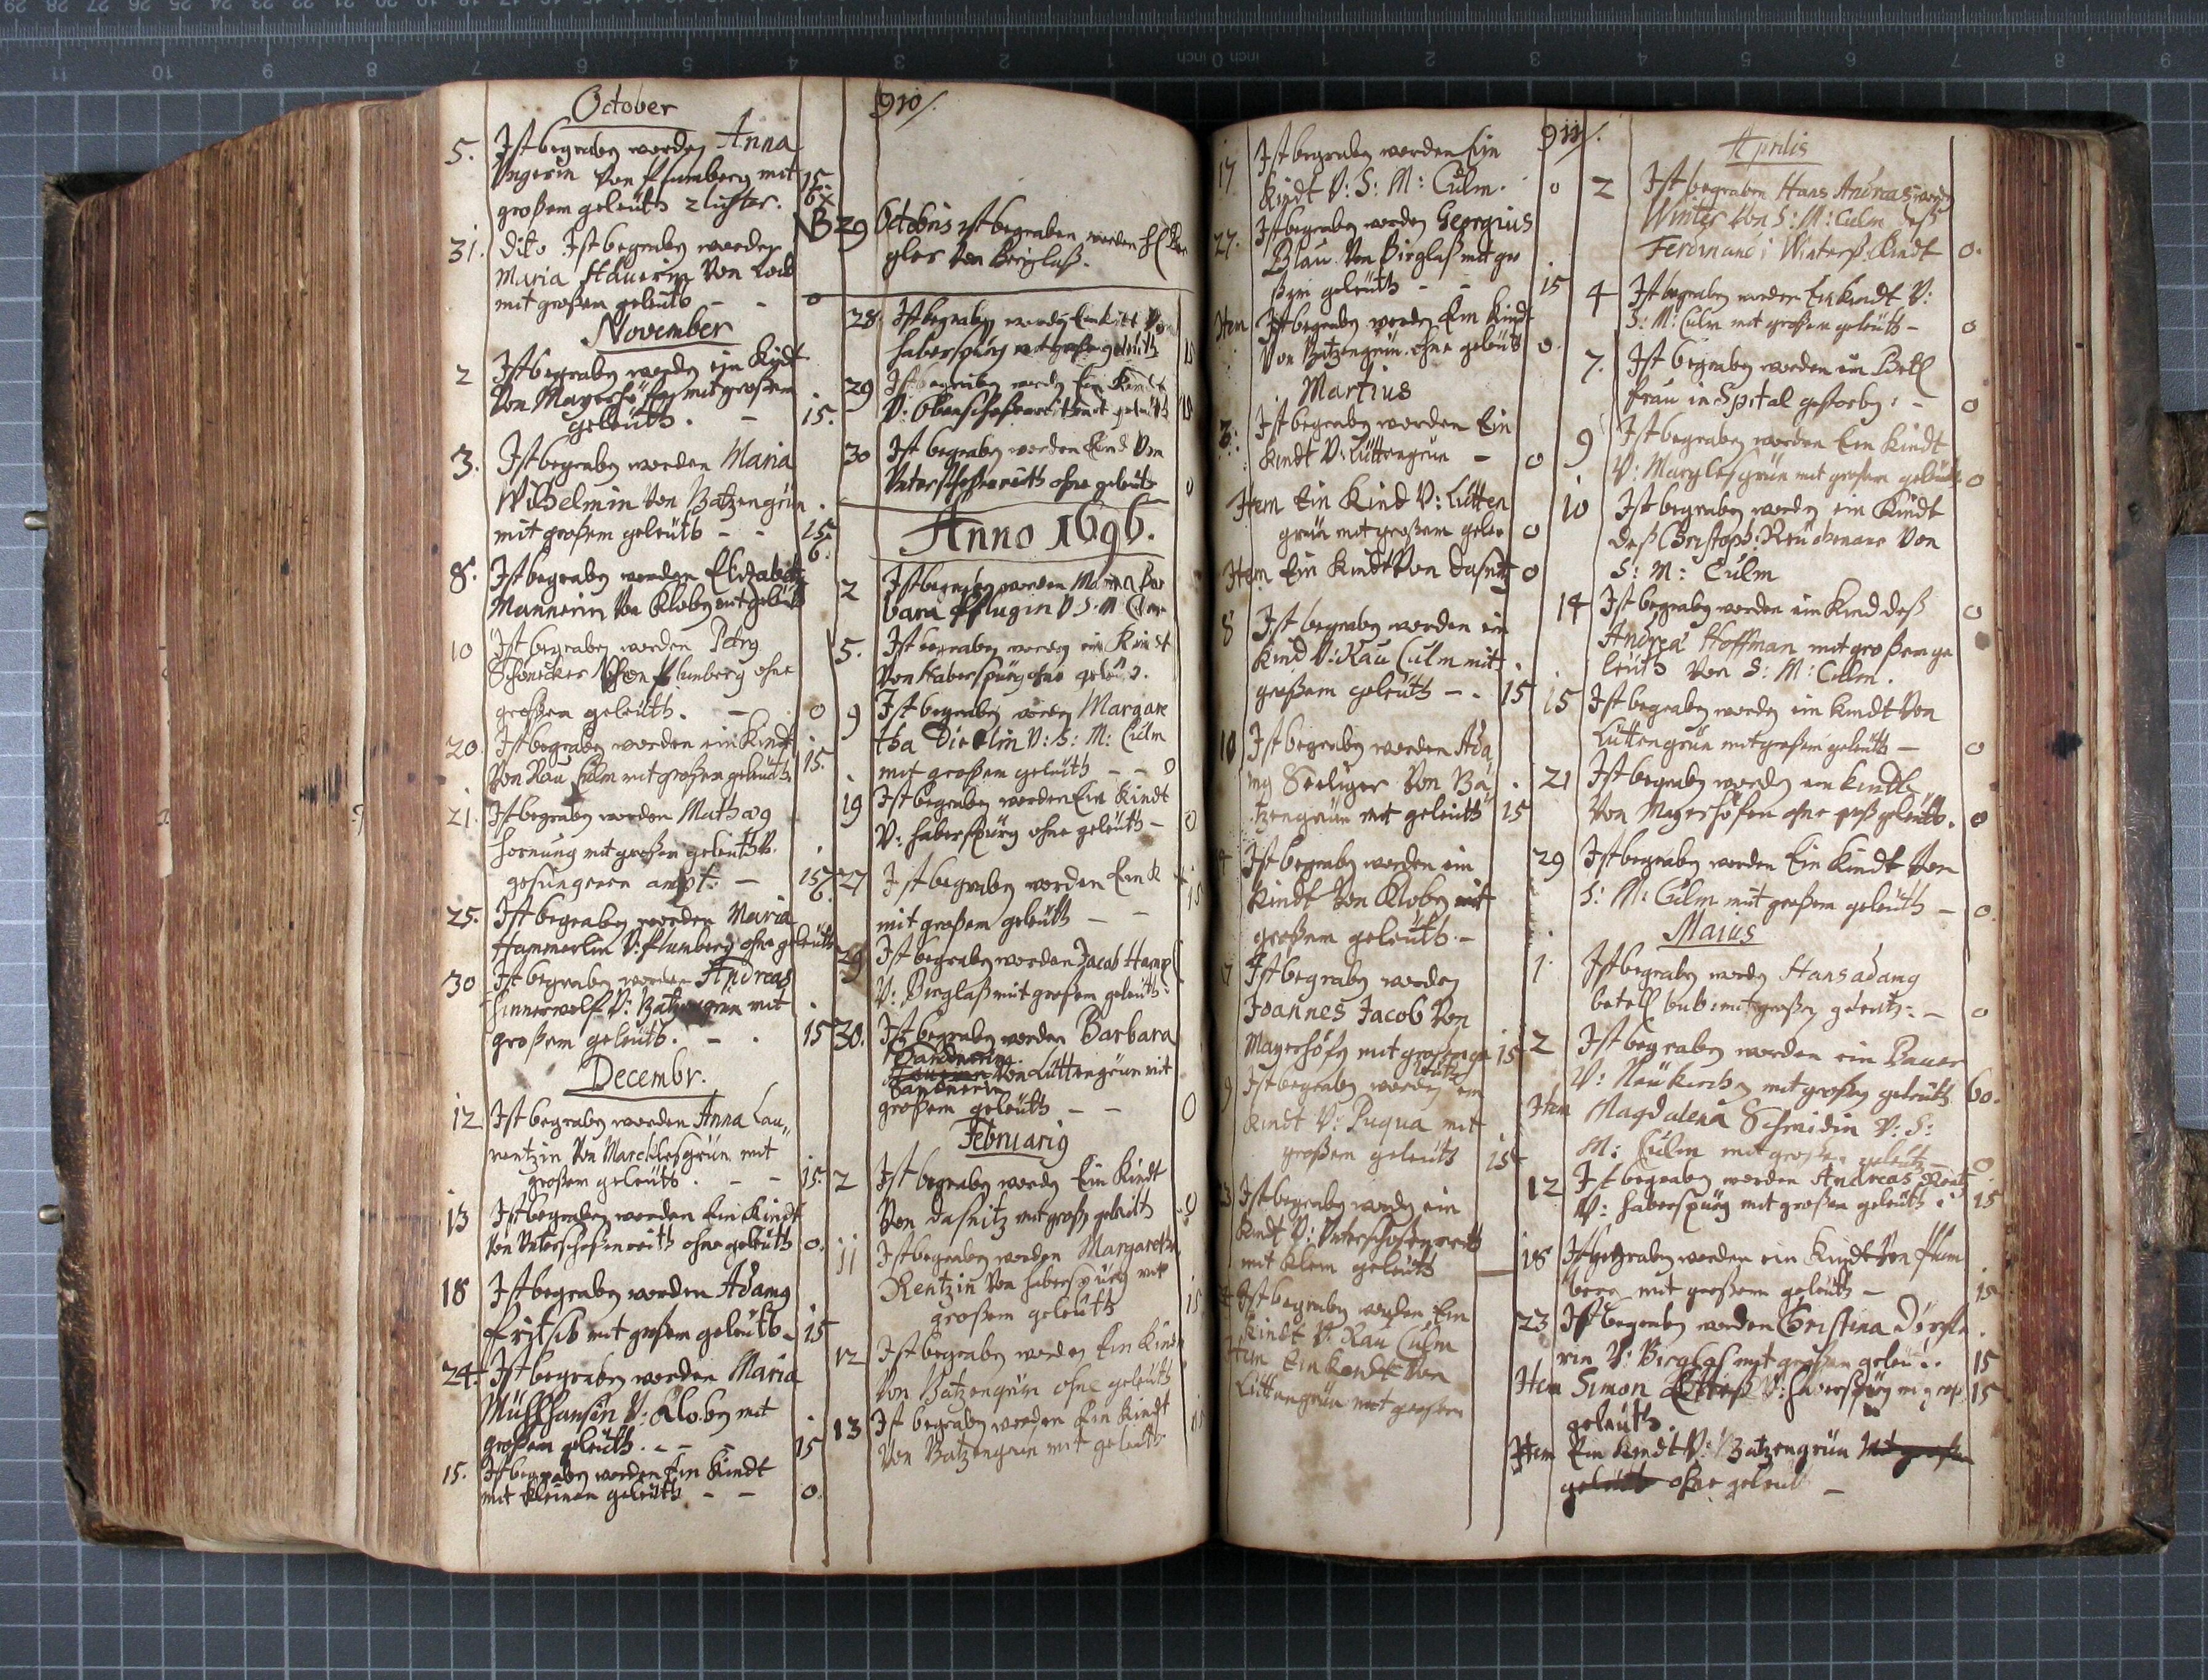 910/.
October
5. Ist begraben worden Anna
Ungerin Von Flumberg mit 15
großem geleüth 2 lichter. 6x
31. dito Ist begraben worden
Maria Von
mit großen geleüth - - 0
November
2 Ist begraben worden ein Kindt
Von Mayershöffen mit großem
geleüth. - 15.
3. Ist begraben worden Maria
Wilhelmin Von Batzengrün
mit großem geleüth - - 15
6.
8. Ist begraben worden Elizabetha
Mannerin Von Kloben mit geleüth
10 Ist begraben worden Petrg
Schönecker Von Flumberg ohne
großen geleüth. - 0
20. Ist begraben worden ein Kindt
Von Rau Culm mit großem geleüth 15.
21. Ist begraben worden Mathæg
Hornung mit großem geleüth
gesungenen ampt: - 15
6.
25. Ist begraben worden Maria
Hammerlin V: Flumberg ohne geleüth
30 Ist begraben worden Andreas
V: Batzengrün mit
großem geleüth. - . 15
Decembr.
12 Ist begraben worden Anna Lau„
rentzin Von Marcklesgrün mit
großem geleüth. - - 15.
13 Ist begraben worden Ein Kindt
Von Unterschoßenreith ohne geleüth 0.
18 Ist begraben worden Adamg
Fritsch mit großem geleüth. 15
24. Ist begraben worden Maria
V: Kloben mit
großem geleüth. - - 15
15. Ist begraben worden Ein Kindt
mit kleinen geleüth - - 0.
NB 29 Octobris ist begraben worden
gler Von Birglaß.
28 Ist begraben worden Ein Kindt Von
Haberspürg mit großem geleüth 15
29 Ist begraben worden Ein Kindt
V: Obenschoßenreith mit geleüth 15
30 Ist begraben worden Kind Von
Unterschoßenreith ohne geleüth 0
Anno 1696.
2 Ist begraben worden Maria Bar
bara Pflugin V S: M Culm
5. Ist begraben worden ein Kindt
Von Haberspürg ohne geleüth.
9 Ist begraben worden Margare
tha Dietlin V: S: M: Culm
mit großem geleüth - - 0
19 Ist begraben worden Ein Kindt
V: Haberspürg ohne geleüth - 0
27 Ist begraben worden Ein K
mit großem geleüth - - 15
29 Ist begraben worden Jacob Hampl
V: Birglaß mit großem geleüth
30. Ist begraben worden Barbara
Sandnerin
Von Lüttengrün mit
Sandnerin
großem geleüth - - 0
Februarig
2 Ist begraben worden Ein Kindt
Von Daßnitz mit groß geleüth 0
11 Ist begraben worden Margaretha
Rentzin Von Haberspürg mit
großem geleüth 15
12 Ist begraben worden Ein Kindt
Von Batzengrün ohne geleüth
13 Ist begraben worden Ein Kindt
Von Batzengrün mit geleüth 15
911/.
17 Ist begraben worden Ein
Kindt V: S: M: Culm. 0
27. Ist begraben worden Georgius
Blau Von Birglaß mit gro
ßem geleüth - - 15
Item Ist begraben worden Ein Kindt
Von Batzengrün ohne geleüth 0.
Martius
3. Ist begraben worden Ein
Kindt V: Lüttengrün - 0
Item Ein Kind V: Lütten
grün mit großem geleü 0
Item Ein Kindt Von Daßnitz 0
8 Ist begraben worden ein
Kind V: Rau Culm mit
großem geleüth - . 15
10 Ist begraben worden Ada
mg Seeliger Von Ba
tzengrün mit geleüth 15
Ist begraben worden ein
Kindt Von Kloben mit
großem geleüth. -
7 Ist begraben worden
Joannes Jacob Von
Mayershöfen mit großem ge 15
leüth
9 Ist begraben worden ein
Kindt V: Puqua mit
großem geleüth 15
13 Ist begraben worden ein
Kindt V: Unterschoßenreith
mit klein geleüth
Ist begraben worden Ein
Kindt V: Rau Culm
Item Ein Kindt Von
Lüttengrün mit großem
Aprilis
2 Ist begraben Hans Andreas worden
Winter Von S: M: Culm deß
Ferdinandi Winterß Kindt 0.
4 Ist begraben worden Ein Kindt V:
S: M: Culm mit großem geleüth - 0
7. Ist begraben worden ein Betl
frau in Spital gestorben: - 0
9 Ist begraben worden Ein Kindt
V: Marglesgrün mit großem geleüth 0
10 Ist begraben worden ein Kindt
deß Christoph Von
S: M: Culm
14 Ist begraben worden ein Kind deß 0
Andreä Hoffman mit großem ge
leüth Von S: M: Culm.
15 Ist begraben worden ein Kindt Von
Lüttengrün mit großem geleüth - 0
21 Ist begraben worden ein Kindt
Von Mayershöfen ohne groß geleüth. 0
29 Ist begraben worden Ein Kindt Von
S: M: Culm mit großem geleüth - 0.
Maius
1. Ist begraben worden Hans adamg
betell bub mit großen geleüth: - 0
2 Ist begraben worden ein Bauer
V: Neükirchen mit großen geleüth 60.
Item Magdalena Schmidin V: S:
M: Culm mit großen geleüth - 0
12 Ist begraben worden Andreas Rentz
V: Haberspürg mit großen geleüth 15
18 Ist begraben worden ein Kindt Von Flum
berg mit großem geleüth - 15
23 Ist begraben worden Christina Dörfle
rin V: Birglaß mit großem geleü. 15
Item Simon V: Haberspürg m: groß 15
geleüth.
Item Ein Kindt V: Batzengrün mit großen
geleüth ohne geleüt -